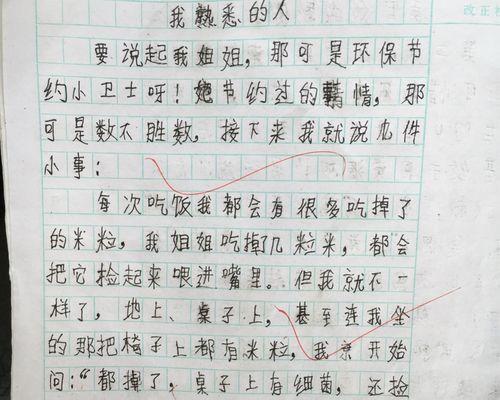 我熟悉的人
要说起我姐姐，那可是环保节
约小卫士呀！她节约过的事情，那
可是数不胜数，接下来我就说几件
小事：
每次吃饭我都会有很多吃掉了
的米粒，我姐姐吃掉了几粒米，都会
把它捡起来喂进嘴里。但我就不一
样了，地上、桌子上，甚至连我坐
的那把椅子上都有米粒，我京开始
问：“都掉了，桌子上有细菌，还捡